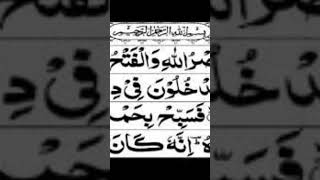 بِسْمِ اللهِ الرَّحْمٰنِ الرَّحِيْمِ
صْرُ اللهِ وَالْفَتْحُ
دْخُلُوْنَ فِيْ دِ
فَسَبِّحْ بِحَمْ
هُ اِنَّهٗ كَانَ